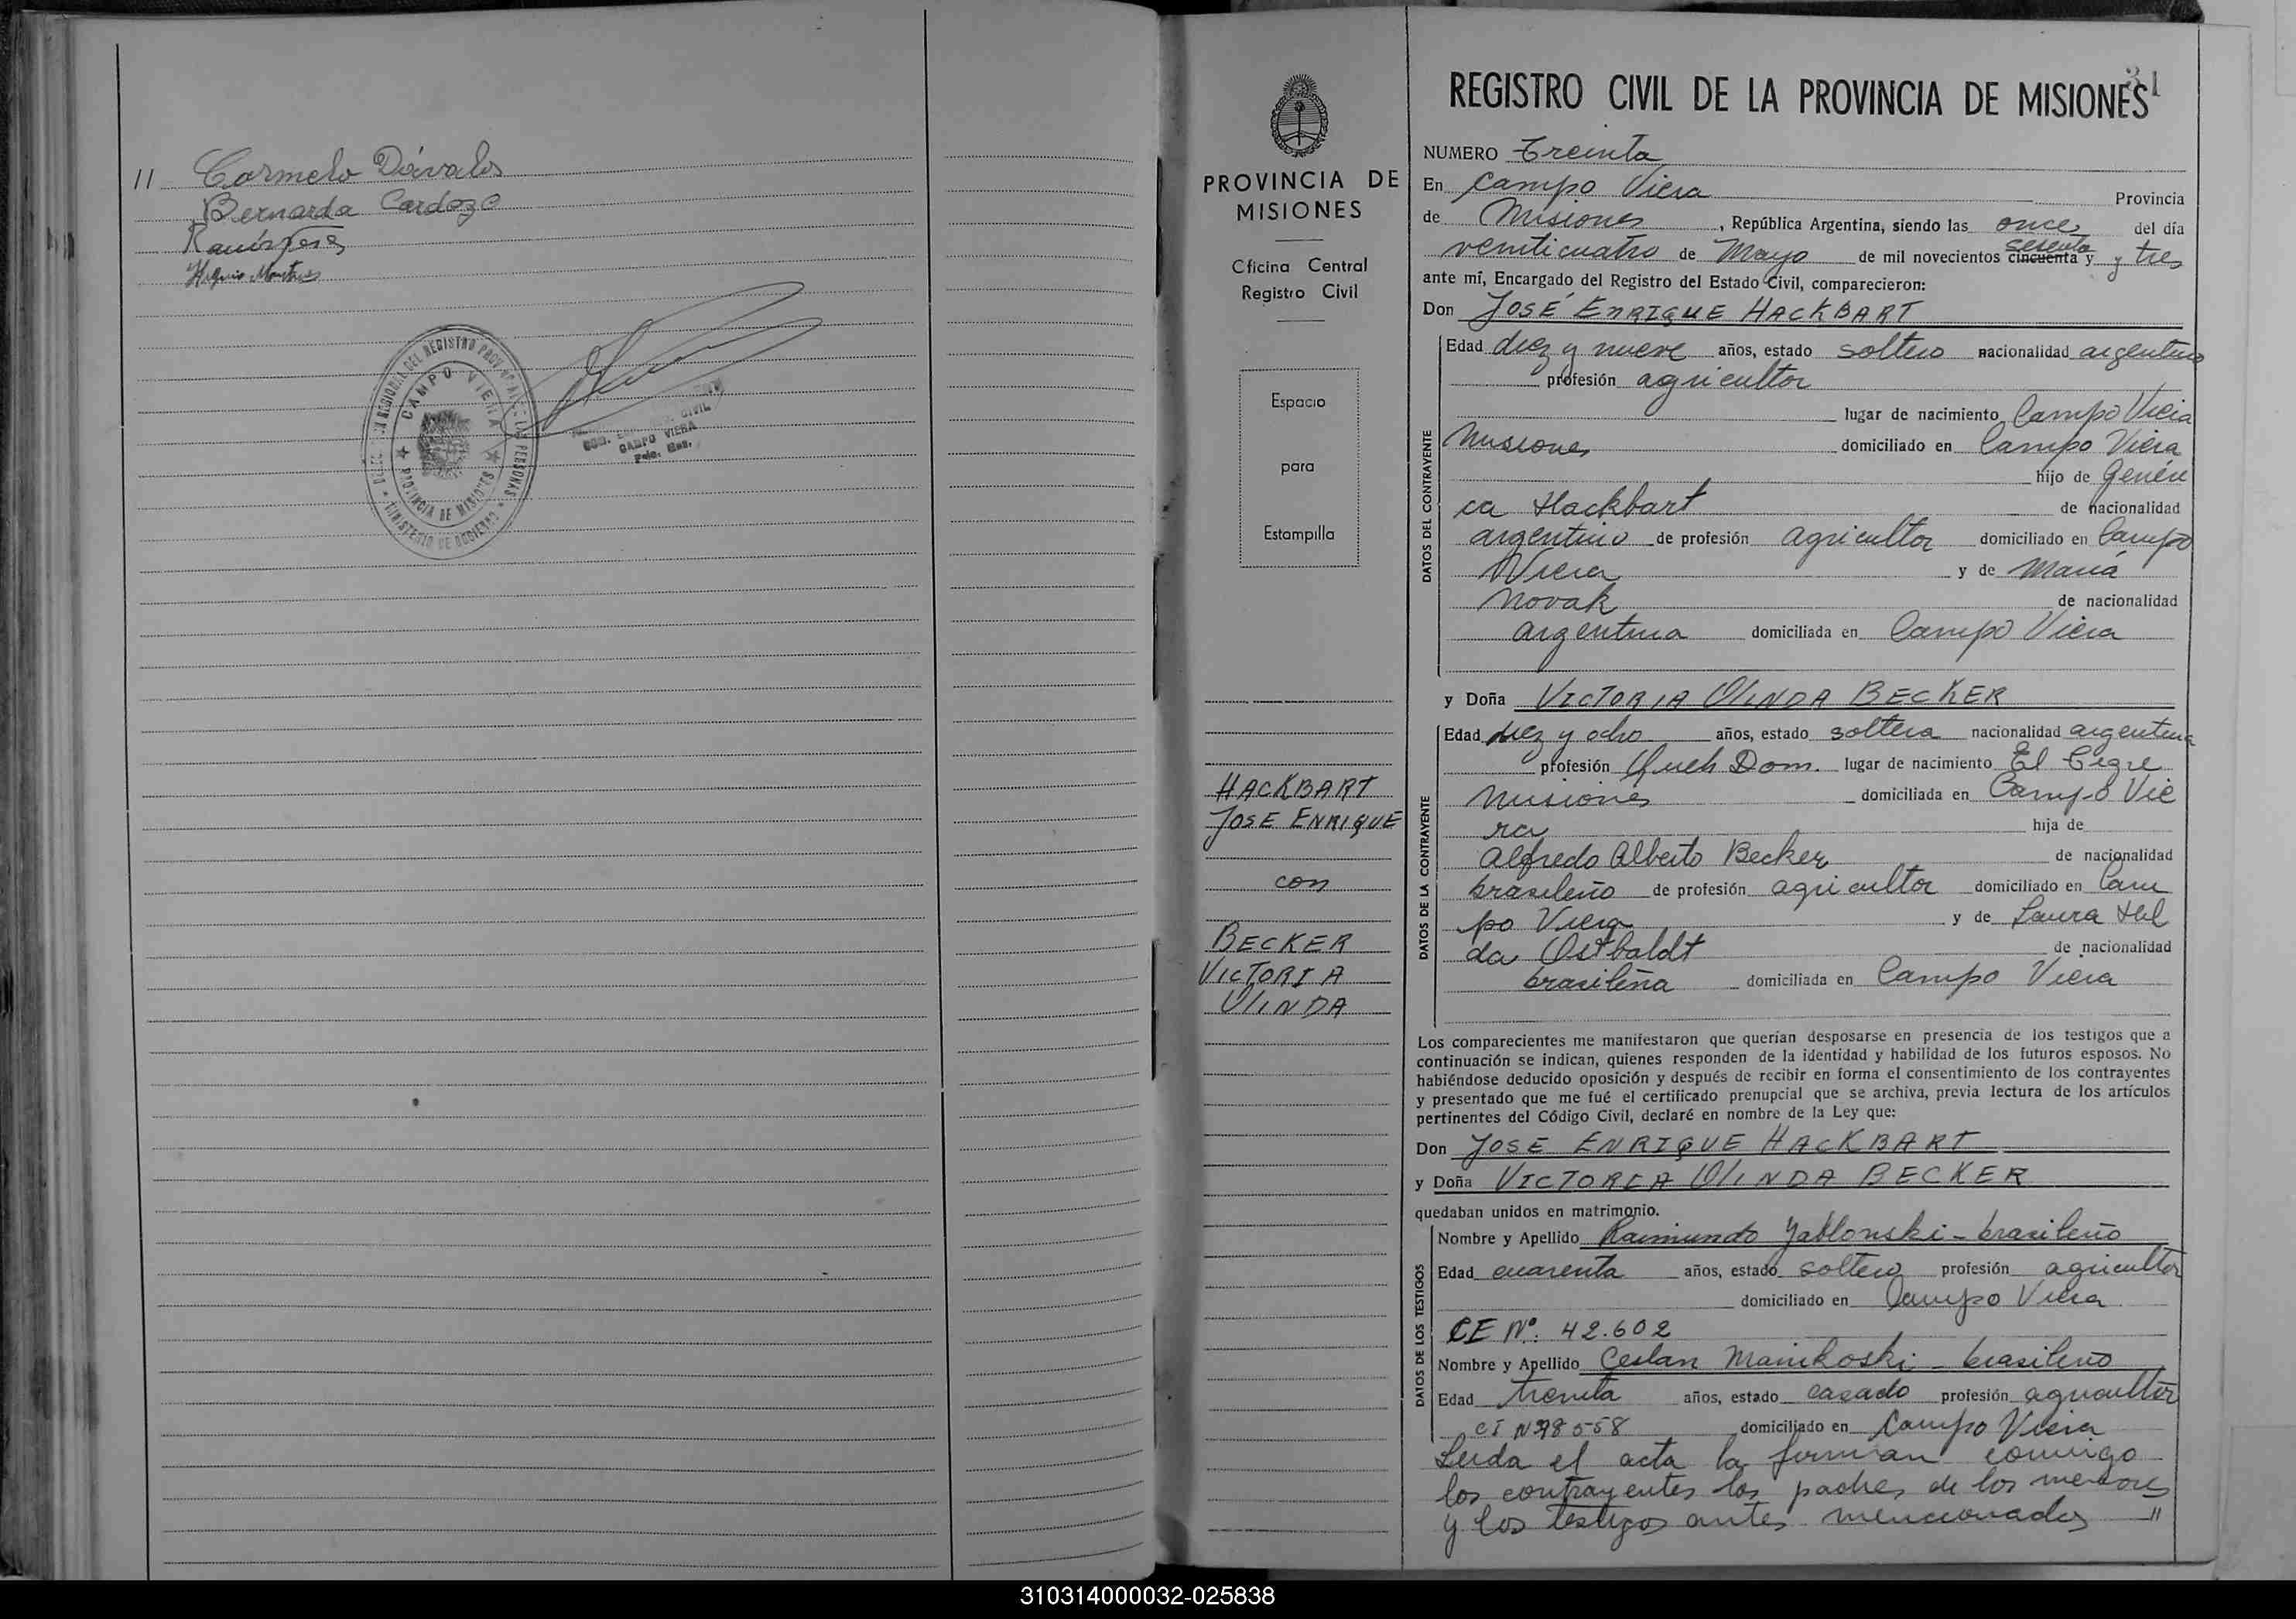 11 Carmelo Dávalos
Bernarda Cardozo
CAMPO VIERA
PROVINCIA DE MISIONES
MINISTERIO DE GOBIERNO
CIVIL
CAMPO VIERA
Pcia. Mnes.
PROVINCIA DE
MISIONES
Oficina Central
Registro Civil
Espacio
para
Estampilla
HACKBART
JOSE ENRIQUE
con
BECKER
VICTORIA
OLINDA
31
REGISTRO CIVIL DE LA PROVINCIA DE MISIONES
NUMERO Treinta
En Campo Viera Provincia
de Misiones, República Argentina, siendo las once del día
sesenta
veinticuatro de Mayo de mil novecientos cincuenta y y tres
ante mí, Encargado del Registro del Estado Civil, comparecieron:
Don JOSÉ ENRIQUE HACKBART
DATOS DEL CONTRAYENTE
Edad diez y nueve años, estado soltero nacionalidad argentino
profesión agricultor
lugar de nacimiento Campo Viera
Misiones domiciliado en Campo Viera
hijo de
ca Hackbart de nacionalidad
argentino de profesión agricultor domiciliado en Campo
Viera y de María
Novak de nacionalidad
argentina domiciliada en Campo Viera
y Doña VICTORIA OLINDA BECKER
DATOS DE LA CONTRAYENTE
Edad diez y ocho años, estado soltera nacionalidad argentina
profesión Queh Dom. lugar de nacimiento El Tigre
Misiones domiciliada en Campo Vie
ra hija de
Alfredo Alberto Becker de nacionalidad
brasileño de profesión agricultor domiciliado en Cam
po Viera y de Laura Hil
da Ostbaldt de nacionalidad
brasileña domiciliada en Campo Viera
Los comparecientes me manifestaron que querían desposarse en presencia de los testigos que a
continuación se indican, quienes responden de la identidad y habilidad de los futuros esposos. No
habiéndose deducido oposición y después de recibir en forma el consentimiento de los contrayentes
y presentado que me fué el certificado prenupcial que se archiva, previa lectura de los artículos
pertinentes del Código Civil, declaré en nombre de la Ley que:
Don JOSE ENRIQUE HACKBART
y Doña VICTORIA OLINDA BECKER
quedaban unidos en matrimonio.
DATOS DE LOS TESTIGOS
Nombre y Apellido Raimundo Yablonski - brasileño
Edad cuarenta años, estado soltero profesión agricultor
domiciliado en Campo Viera
CE Nº: 42.602
Nombre y Apellido Ceslan Manikoski - brasileño
Edad treinta años, estado casado profesión agricultor
CI domiciliado en Campo Viera
Leida el acta la firman conmigo
los contrayentes los padres de los menores
y los testigos antes mencionados 11
310314000032-025838